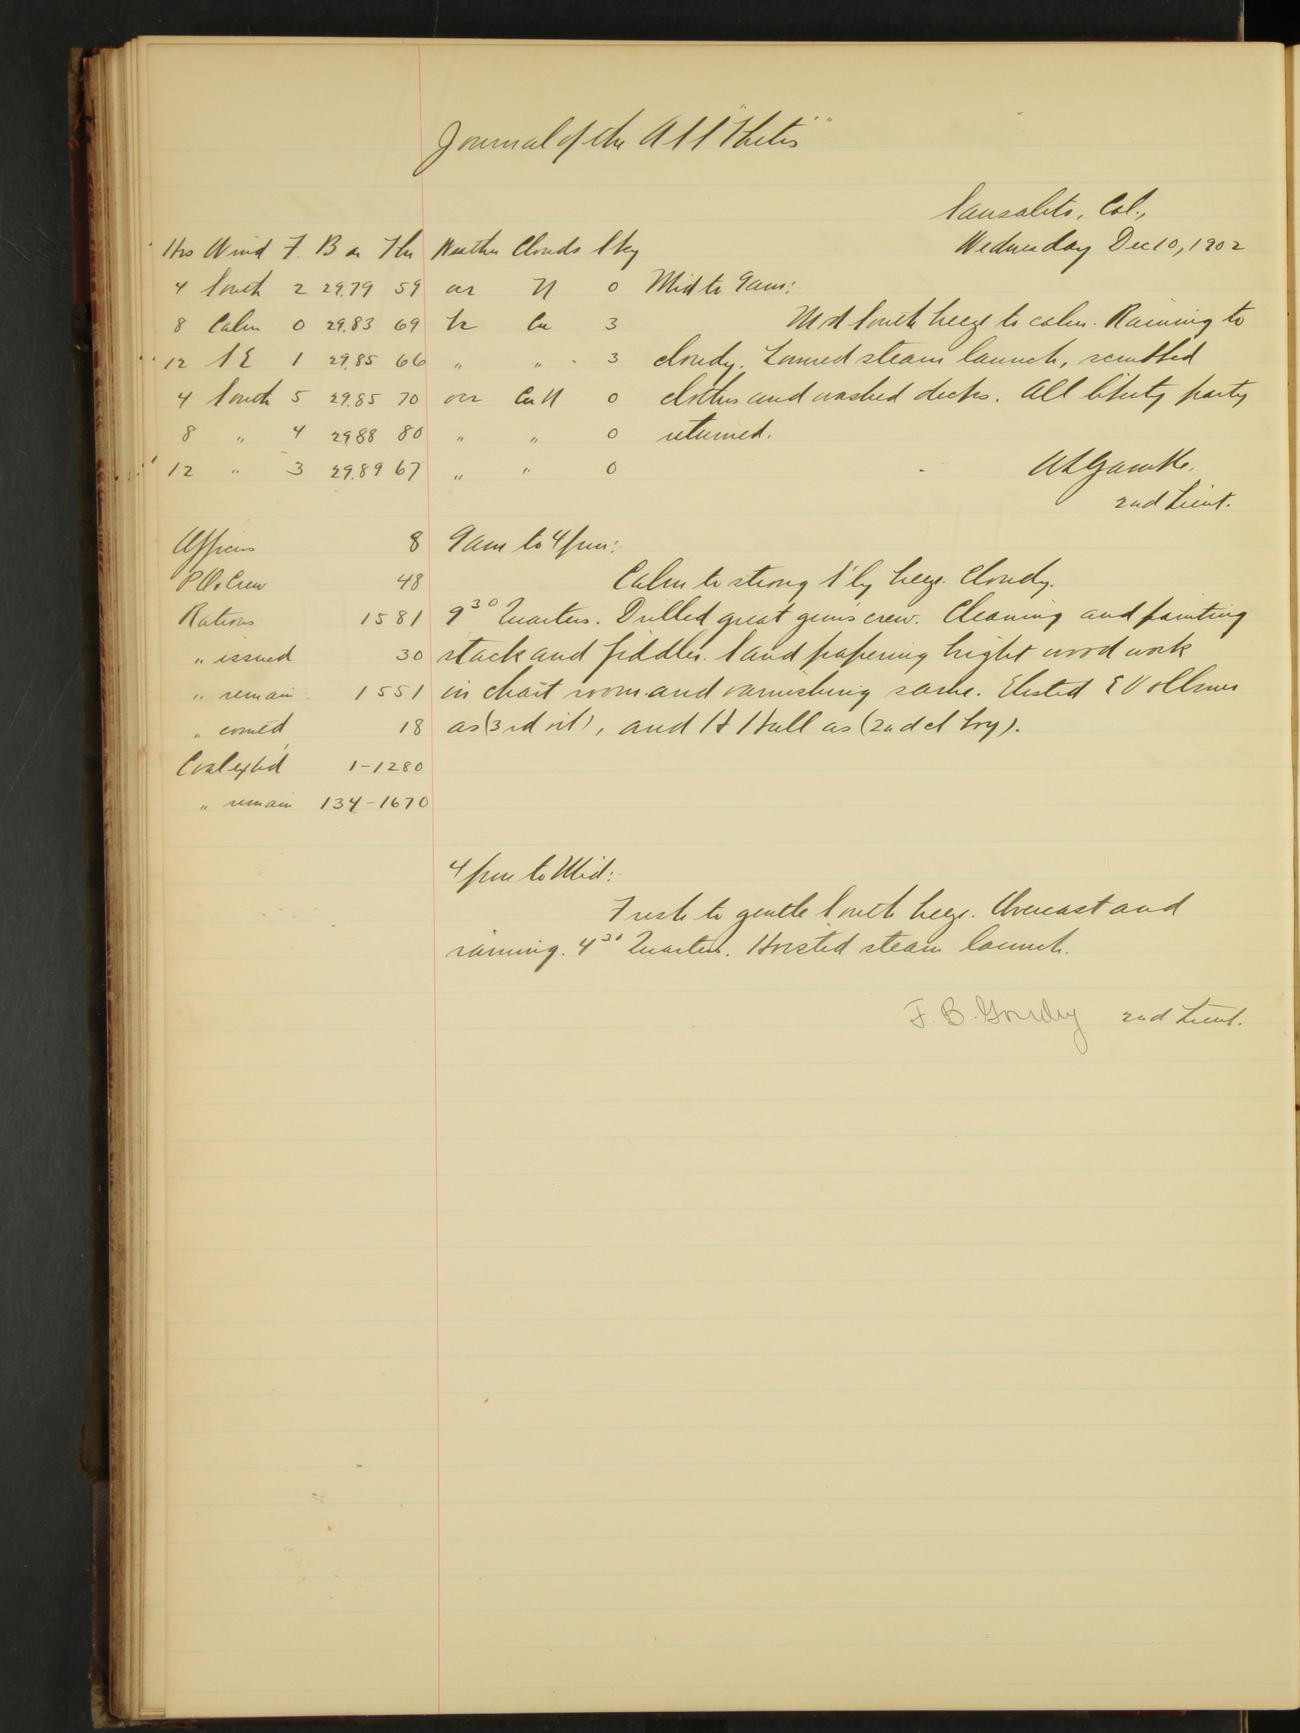 Journal of the USS "Thetis"
Sausalito, Cal.,
Wednesday Dec 10, 1902
Hrs Wind F. Bar Thr Weather Clouds Sky
4 South 2 29.79 59 or N 0 Mid to 9am:
8 Calm 0 29.83 69 bc Cu 3 Mod South breeze to calm. Raining to
12 SE 1 29.85 66 " " 3 cloudy. Lowered steam launch, scrubbed
4 South 5 29.85 70 ocr CuN 0 clothes and washed decks. All liberty party
8 " 4 29.88 80 " " 0 returned.
12 " 3 29.89 67 " " 0
2nd Lieut.
Officers 8 9am to 4pm:
P.O. Crew 48 Calm to strong S'ly breeze. Cloudy.
Rations 1581 9 30 Quarters. Drilled great guns crew. Cleaning and painting
" issued 30 stack and fiddler. Sand papering bright wood work
" remain 1551 in chart room and varnishing same. Elisted E Vollmer
" comtd 18 as (3rd oil), and H Hall as (2nd cl boy).
Coal expd 1-1280
" remain 134-1670
4pm to Mid:
Fresh to gentle South breeze. Overcast and
raining. 4 30 Quarters. Hoisted steam launch.
F. B. Goudey 2nd Lieut.